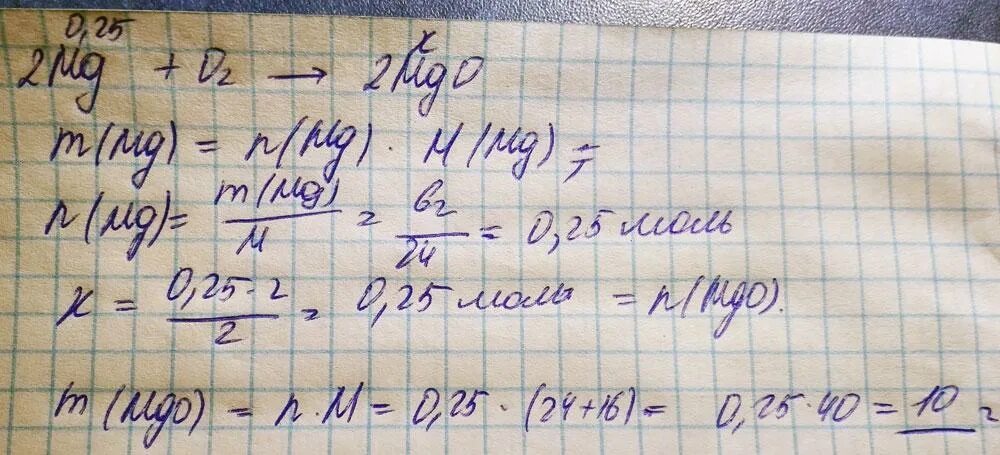 0,25 x
2Mg + O₂ → 2MgO
m(Mg) = n(Mg) · M(Mg) ;
n(Mg) = m(Mg)/M = 6г/24 = 0,25 моль
x = 0,25·2/2 = 0,25 моль = n(MgO).
m(MgO) = n·M = 0,25·(24+16) = 0,25·40 = 10 г